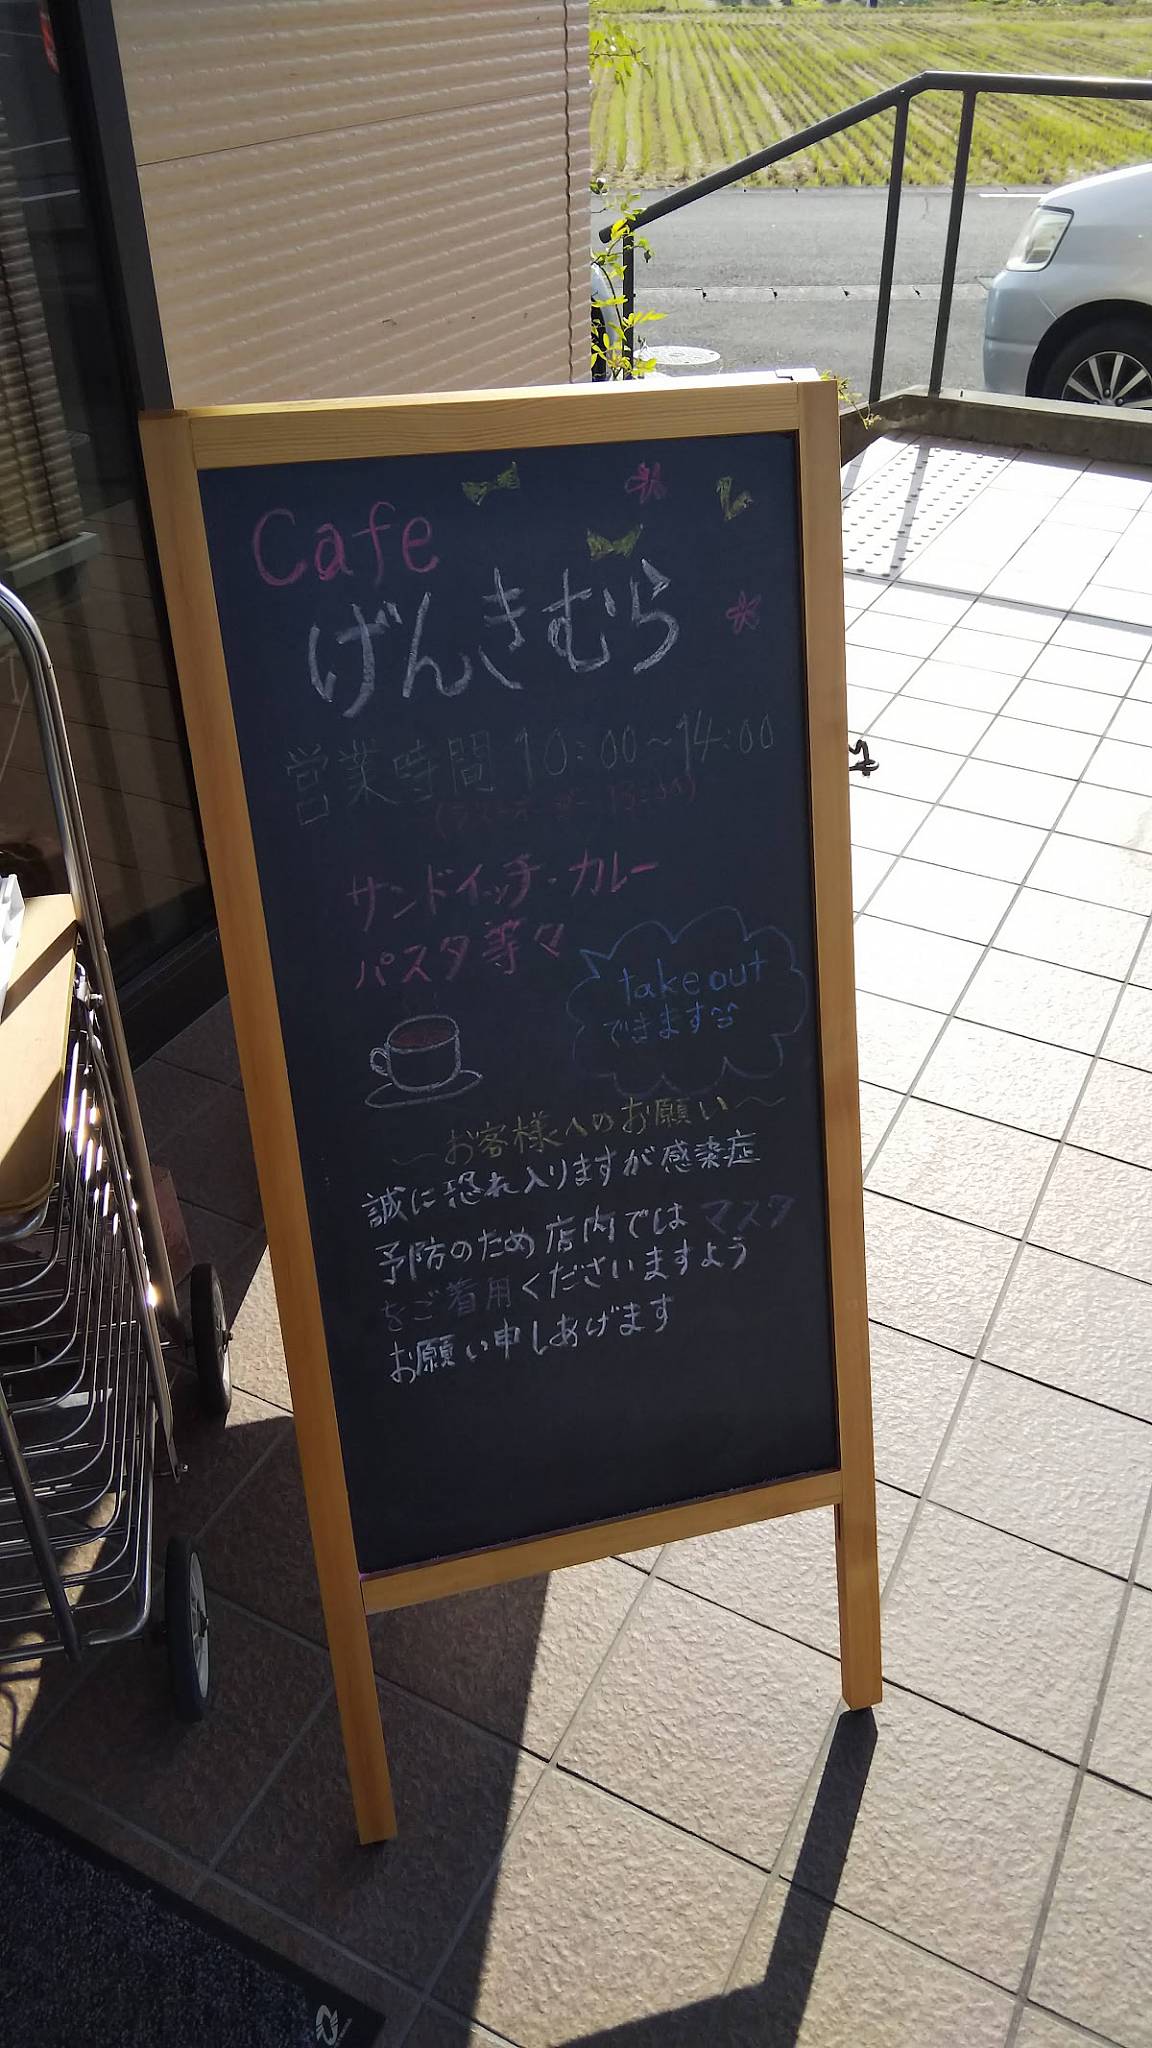 Cafe
げんきむら
営業時間 10:00～14:00
(ラストオーダー 13:30)
サンドイッチ・カレー
パスタ等々
take out
できます
～お客様へのお願い～
誠に恐れ入りますが感染症
予防のため店内ではマスク
をご着用くださいますよう
お願い申しあげます